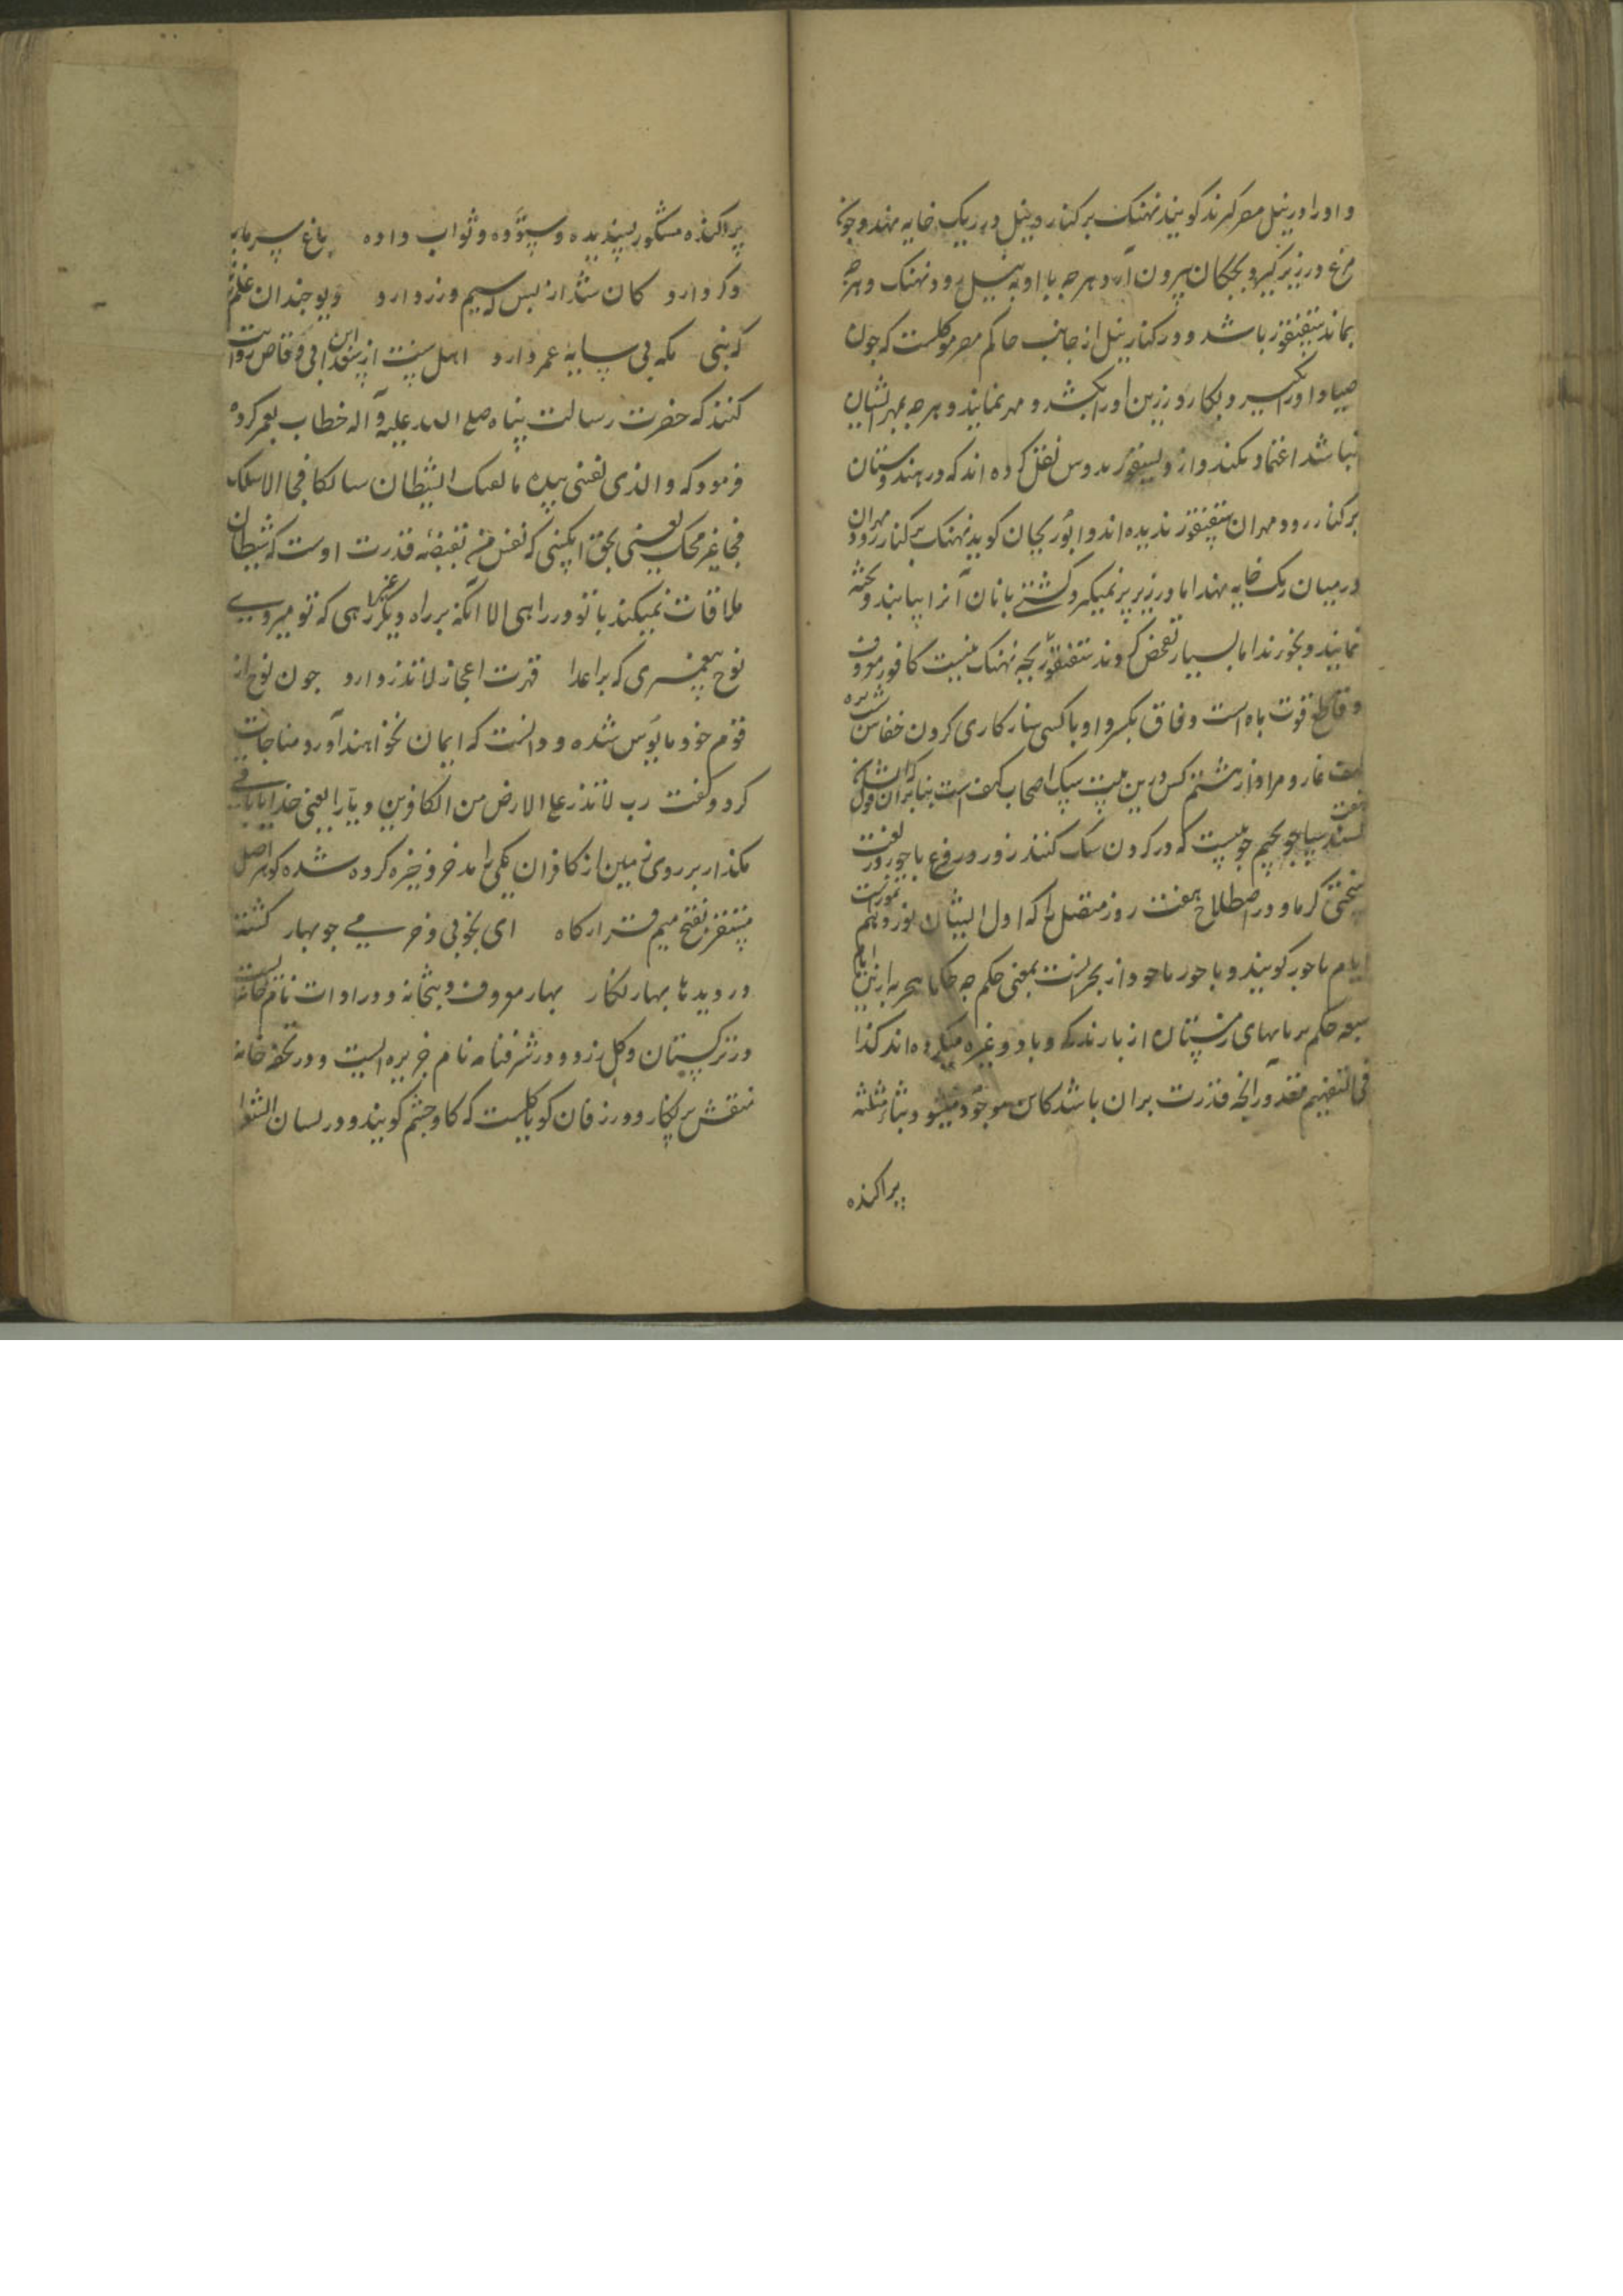 و او را در نیل مصر گیرند گویند نهنک بر کنار رود نیل در ریک خایه نهد و چون
مرغ در زیر گیرد و بچکان بیرون آرد و هرچه با او به نیل رود نهنک و هرچه
بماند سقنقور باشد و در کنار نیل از جانب حاکم مصر موکلست که چون
صیاد او را بگیرد و بکارد زرین او را بکشد و مهر نمایند و هرچه بمهر ایشان
نباشد اعتماد نکنند و از نقل کرده اند که در هندوستان
بر کنار رود مهران سقنقور ندیده اند و ابوریحان گوید نهنک بر کنار رود مهران
در میان ریک خایه نهد اما در زیر پر نمیگیرد و کشتی بانان آنرا بیابند و پخته
نمایند و بخورند اما بسیار تفحص کردند سقنقور بچه نهنک نیست کافور معروف
و قاطع قوت باه است وفاق بکسر واو با کسی سازکاری کردن خفاش شب پره
غار و مراد از هشتم کس درین بیت سک اصحاب کهف است بنابران قول که ایشان
هفت بجیم چوبیست که در کردن سک کنند زور دروغ باحور در لغت
سختی کرما و در اصطلاح هفت روز متصل را که اول ایشان نوزدهم تموزست
ایام باحور کویند و باحور ماخوذ از بحرانست بمعنی حکم چه حکما بتجربه ازین ایام
سبعه حکم بر ماههای زمستان از بارندکی و باد و غیره میکرده اند کذا
فی التفهیم مقدور آنچه قدرت بران باشد کاین موجود میشود
پراکنده
پراکنده مشکور پسندیده و ستوده و ثواب داده باغ سرمایه
دکر دارد کان شد از بس که سیم و زر دارد و یو چندان غلم
که بنی مکه بی سایهٔ عمر دارد اهل سنت از سعد ابن ابی وقاص روایت
کنند که حضرت رسالت پناه صلی الله علیه و آله خطاب بعمر کرده
فرمود که والذی نفسی بیده ما لقیک الشیطان سالکا فجا الا سلک
فجا غیر فجک یعنی بحق آنکسی که نفس من بقبضه قدرت اوست که شیطان
ملاقات نمیکند با تو در راهی الا آنکه بر راه دیکر غیر راهی که تو میروی
نوح پیغمبری که بر اعدا قهرت اعجاز لاتذر دارد چون نوح از
قوم خود مایوس شده و دانست که ایمان نخواهند آورد مناجات
کرد و گفت رب لاتذر علی الارض من الکافرین دیارا یعنی خدایا باقی
مکذار بر روی زمین از کافران یکی را مدخر ذخیره کرده شده کوهر اصل
مستقر بفتح میم قرارکاه ای بخوبی و خرمی چو بهار کشته
در دیدها بهار نکار بهار معروف و بتخانه و در ادات نام بتخانه ایست
در ترکستان و کل زرد و در شرفنامه نام جزیره ایست و در تحفه خانه
منقش پر نکار و در زفان کویا کلیست که کاوچشم کویند و در لسان الشعرا